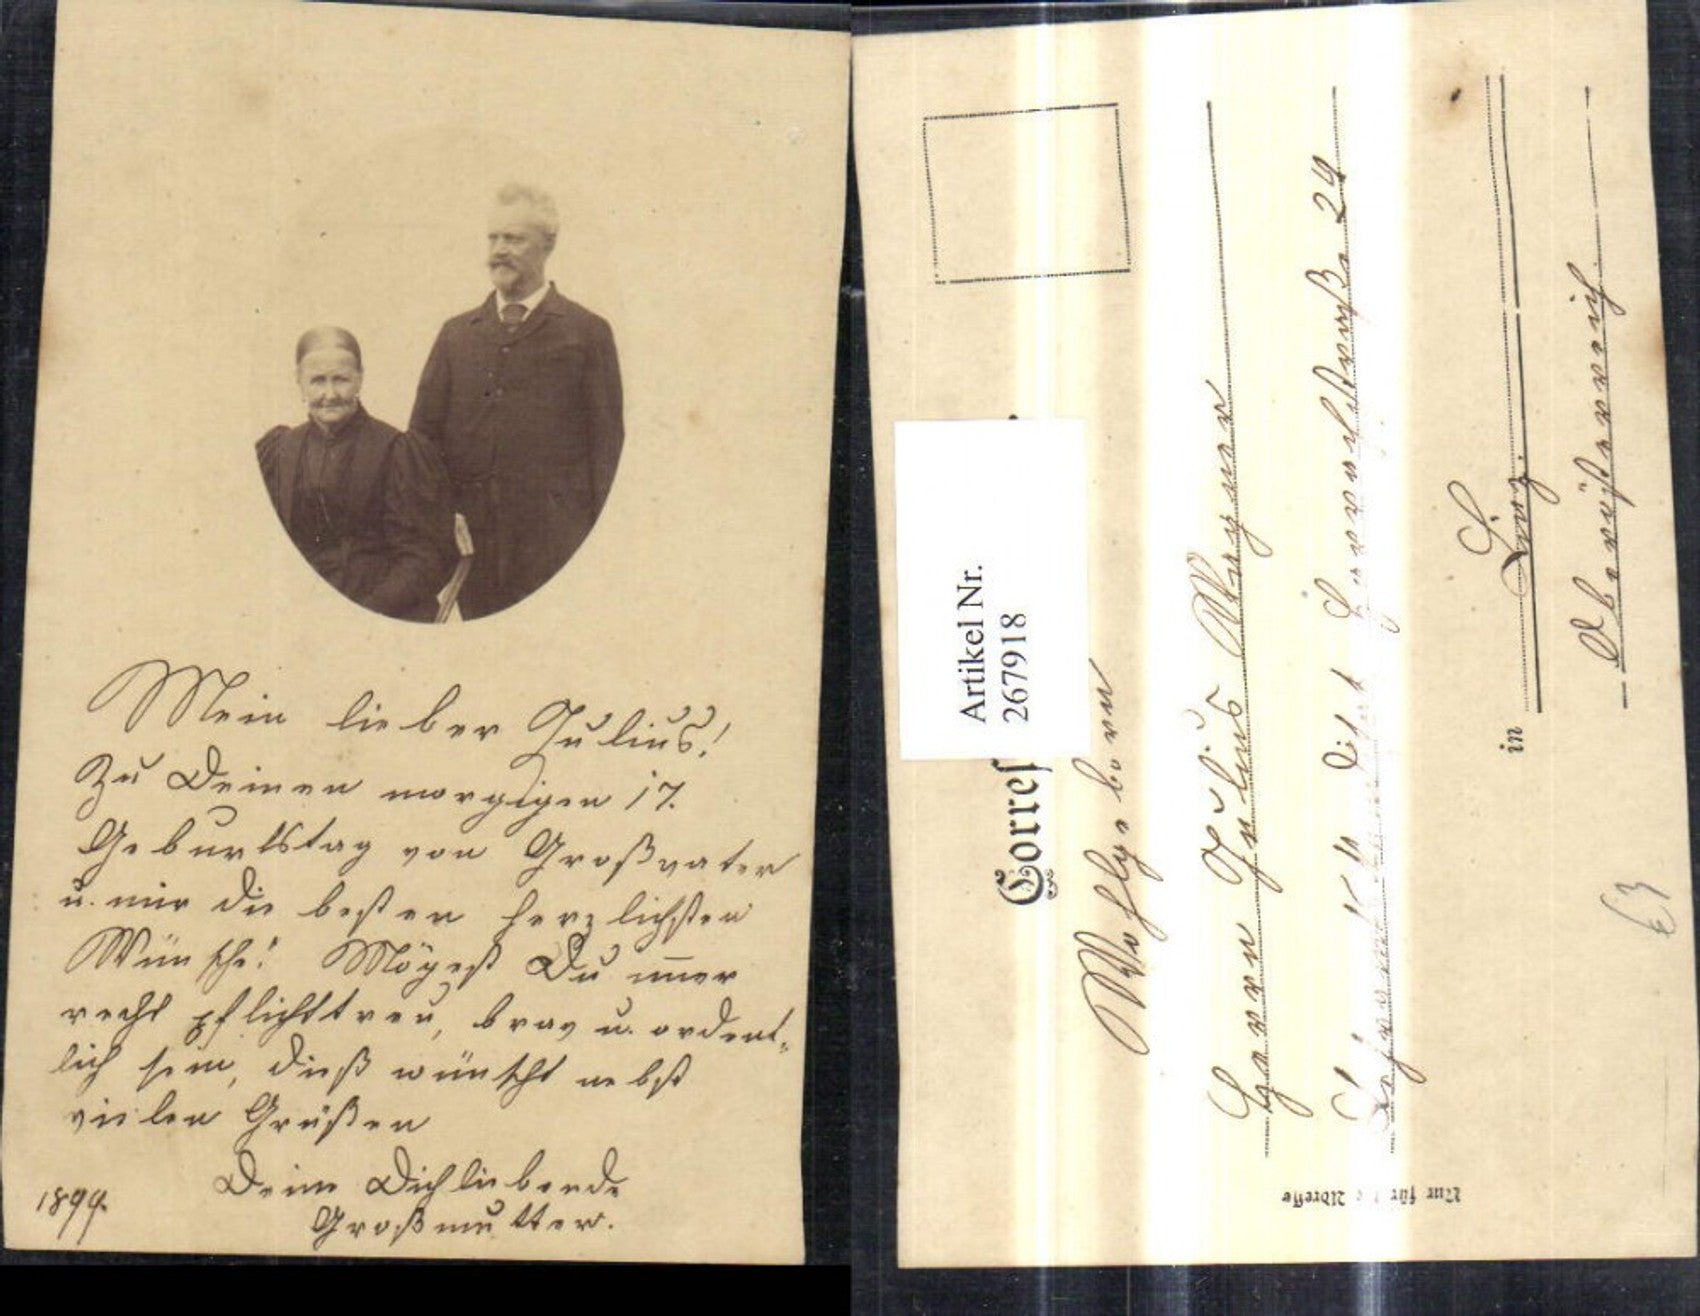 Mein lieber Julius!
Zu Deinen morgigen 17.
Geburtstag von Großvater
u. mir die besten herzlichsten
Wünsche! Mögest Du im̅er
recht pflichttreu, brav u. ordent-
lich sein, dieß wünscht nebst
vielen Grüßen
Deine Dich liebende
Großmutter.
1899.
Artikel Nr.
267918
Corres
Wohlgeborn
Herrn Julius Wagner
Harrachstraße 24
in Linz.
Oberösterreich.
Nur für Adresse